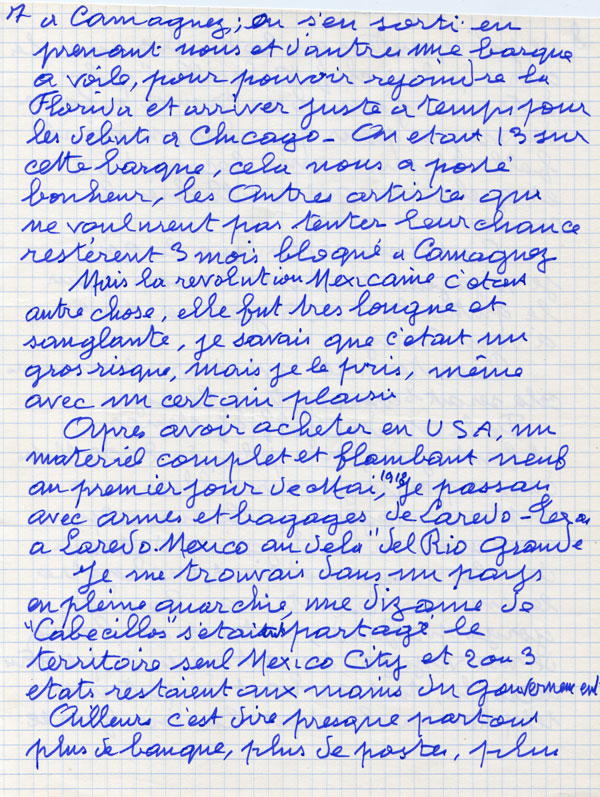 7 a Camaguez; on s'en sorti en
prenant nous et d'autres une barque
a voile, pour pouvoir rejoindre la
Florida et arriver juste a temps pour
les debuts a Chicago - On etait 13 sur
cette barque, cela nous a porté
bonheur, les Autres artistes qui
ne voulurent pas tenter leur chance
restérent 3 mois bloqué a Camaguez
Mais la revolution Mexicaine c'etait
autre chose, elle fut tres longue et
sanglante, je savais que c'etait un
gros risque, mais je le pris, même
avec un certain plaisir
Apres avoir acheter en USA, un
materiel complet et flambant neuf
au premier jour de Mai, 1918, je passai
avec armes et bagages de Laredo - Texas
a Laredo. Mexico au dela "del Rio Grande
Je me trouvais dans un pays
en pleine anarchie, une dizaine de
"Cabecillos" s'etaient partagé le
territoire seul Mexico City et 2 ou 3
etats restaient aux mains du Gouvernement
Ailleurs c'est dire presque partout
plus de banque, plus de postes, plus